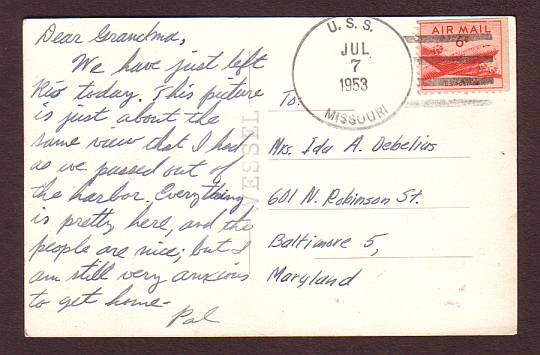 Dear Grandma,
We have just left
Rio today. This picture
is just about the
same view that I had
as we passed out of
the harbor. Everything
is pretty here, and the
people are nice; but I
am still very anxious
to get home-
Pal
WESSEL
U. S. S.
JUL
7
1953
MISSOURI
AIR MAIL
6¢
To:
Mrs. Ida A. Debelius
601 N. Robinson St.
Baltimore 5,
Maryland